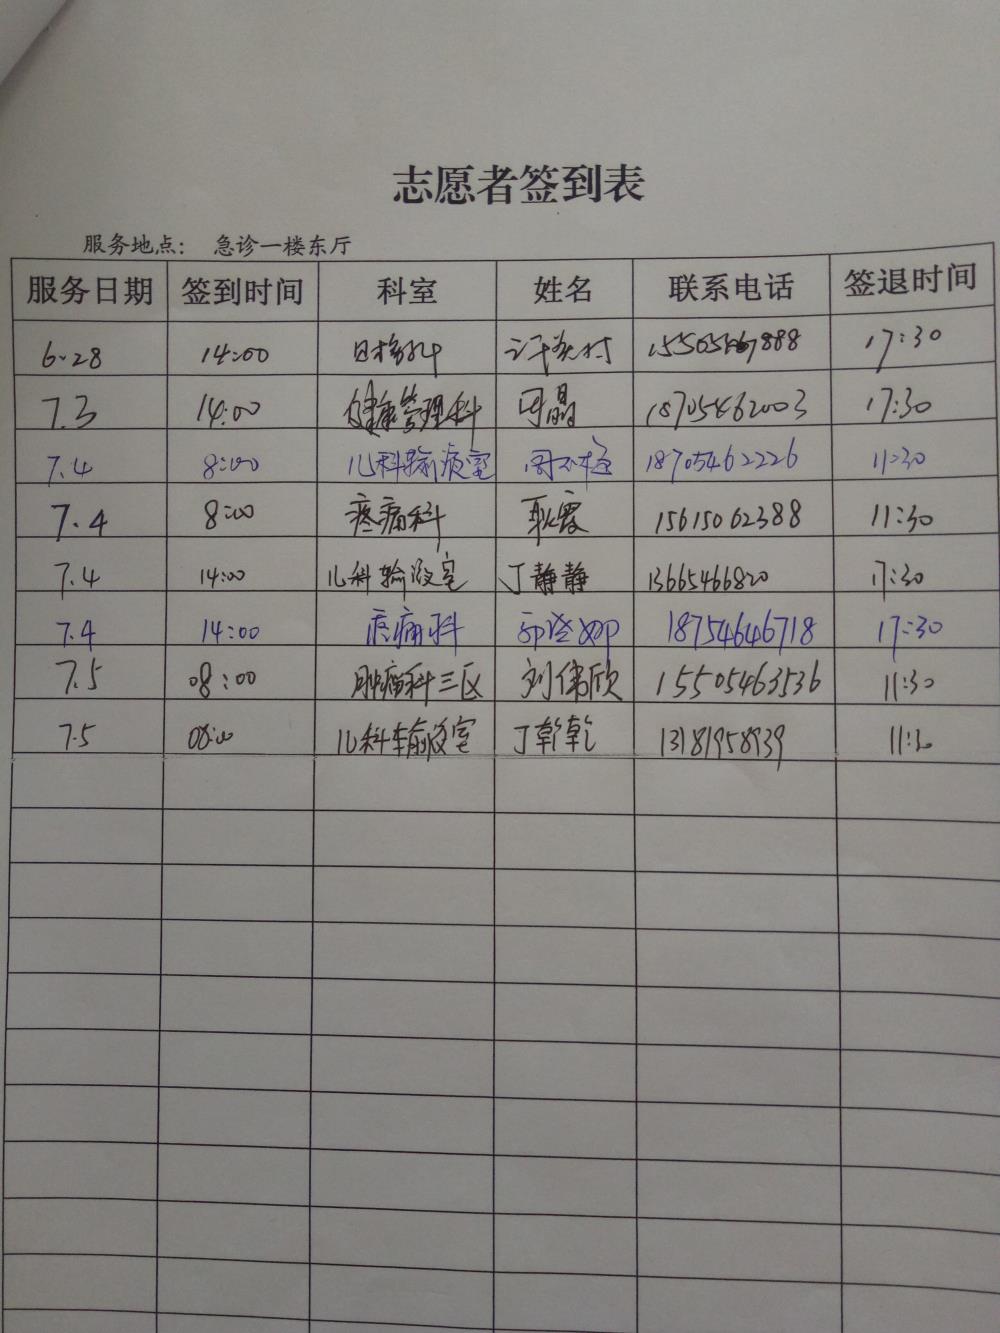 志愿者签到表
服务地点： 急诊一楼东厅
服务日期 签到时间 科室 姓名 联系电话 签退时间
6.28 14:00 17:30
7.3 14:00 健康管理科 周晶 18705462003 17:30
7.4 8:00 儿科输液室 18705462226 11:30
7.4 8:00 疼痛科 耿霞 15615062388 11:30
7.4 14:00 儿科输液室 丁静静 13665466820 17:30
7.4 14:00 疼痛科 18754646718 17:30
7.5 08:00 肿瘤科三区 刘伟欣 15505463536 11:30
7.5 08:00 儿科输液室 丁乾乾 13181958939 11:30